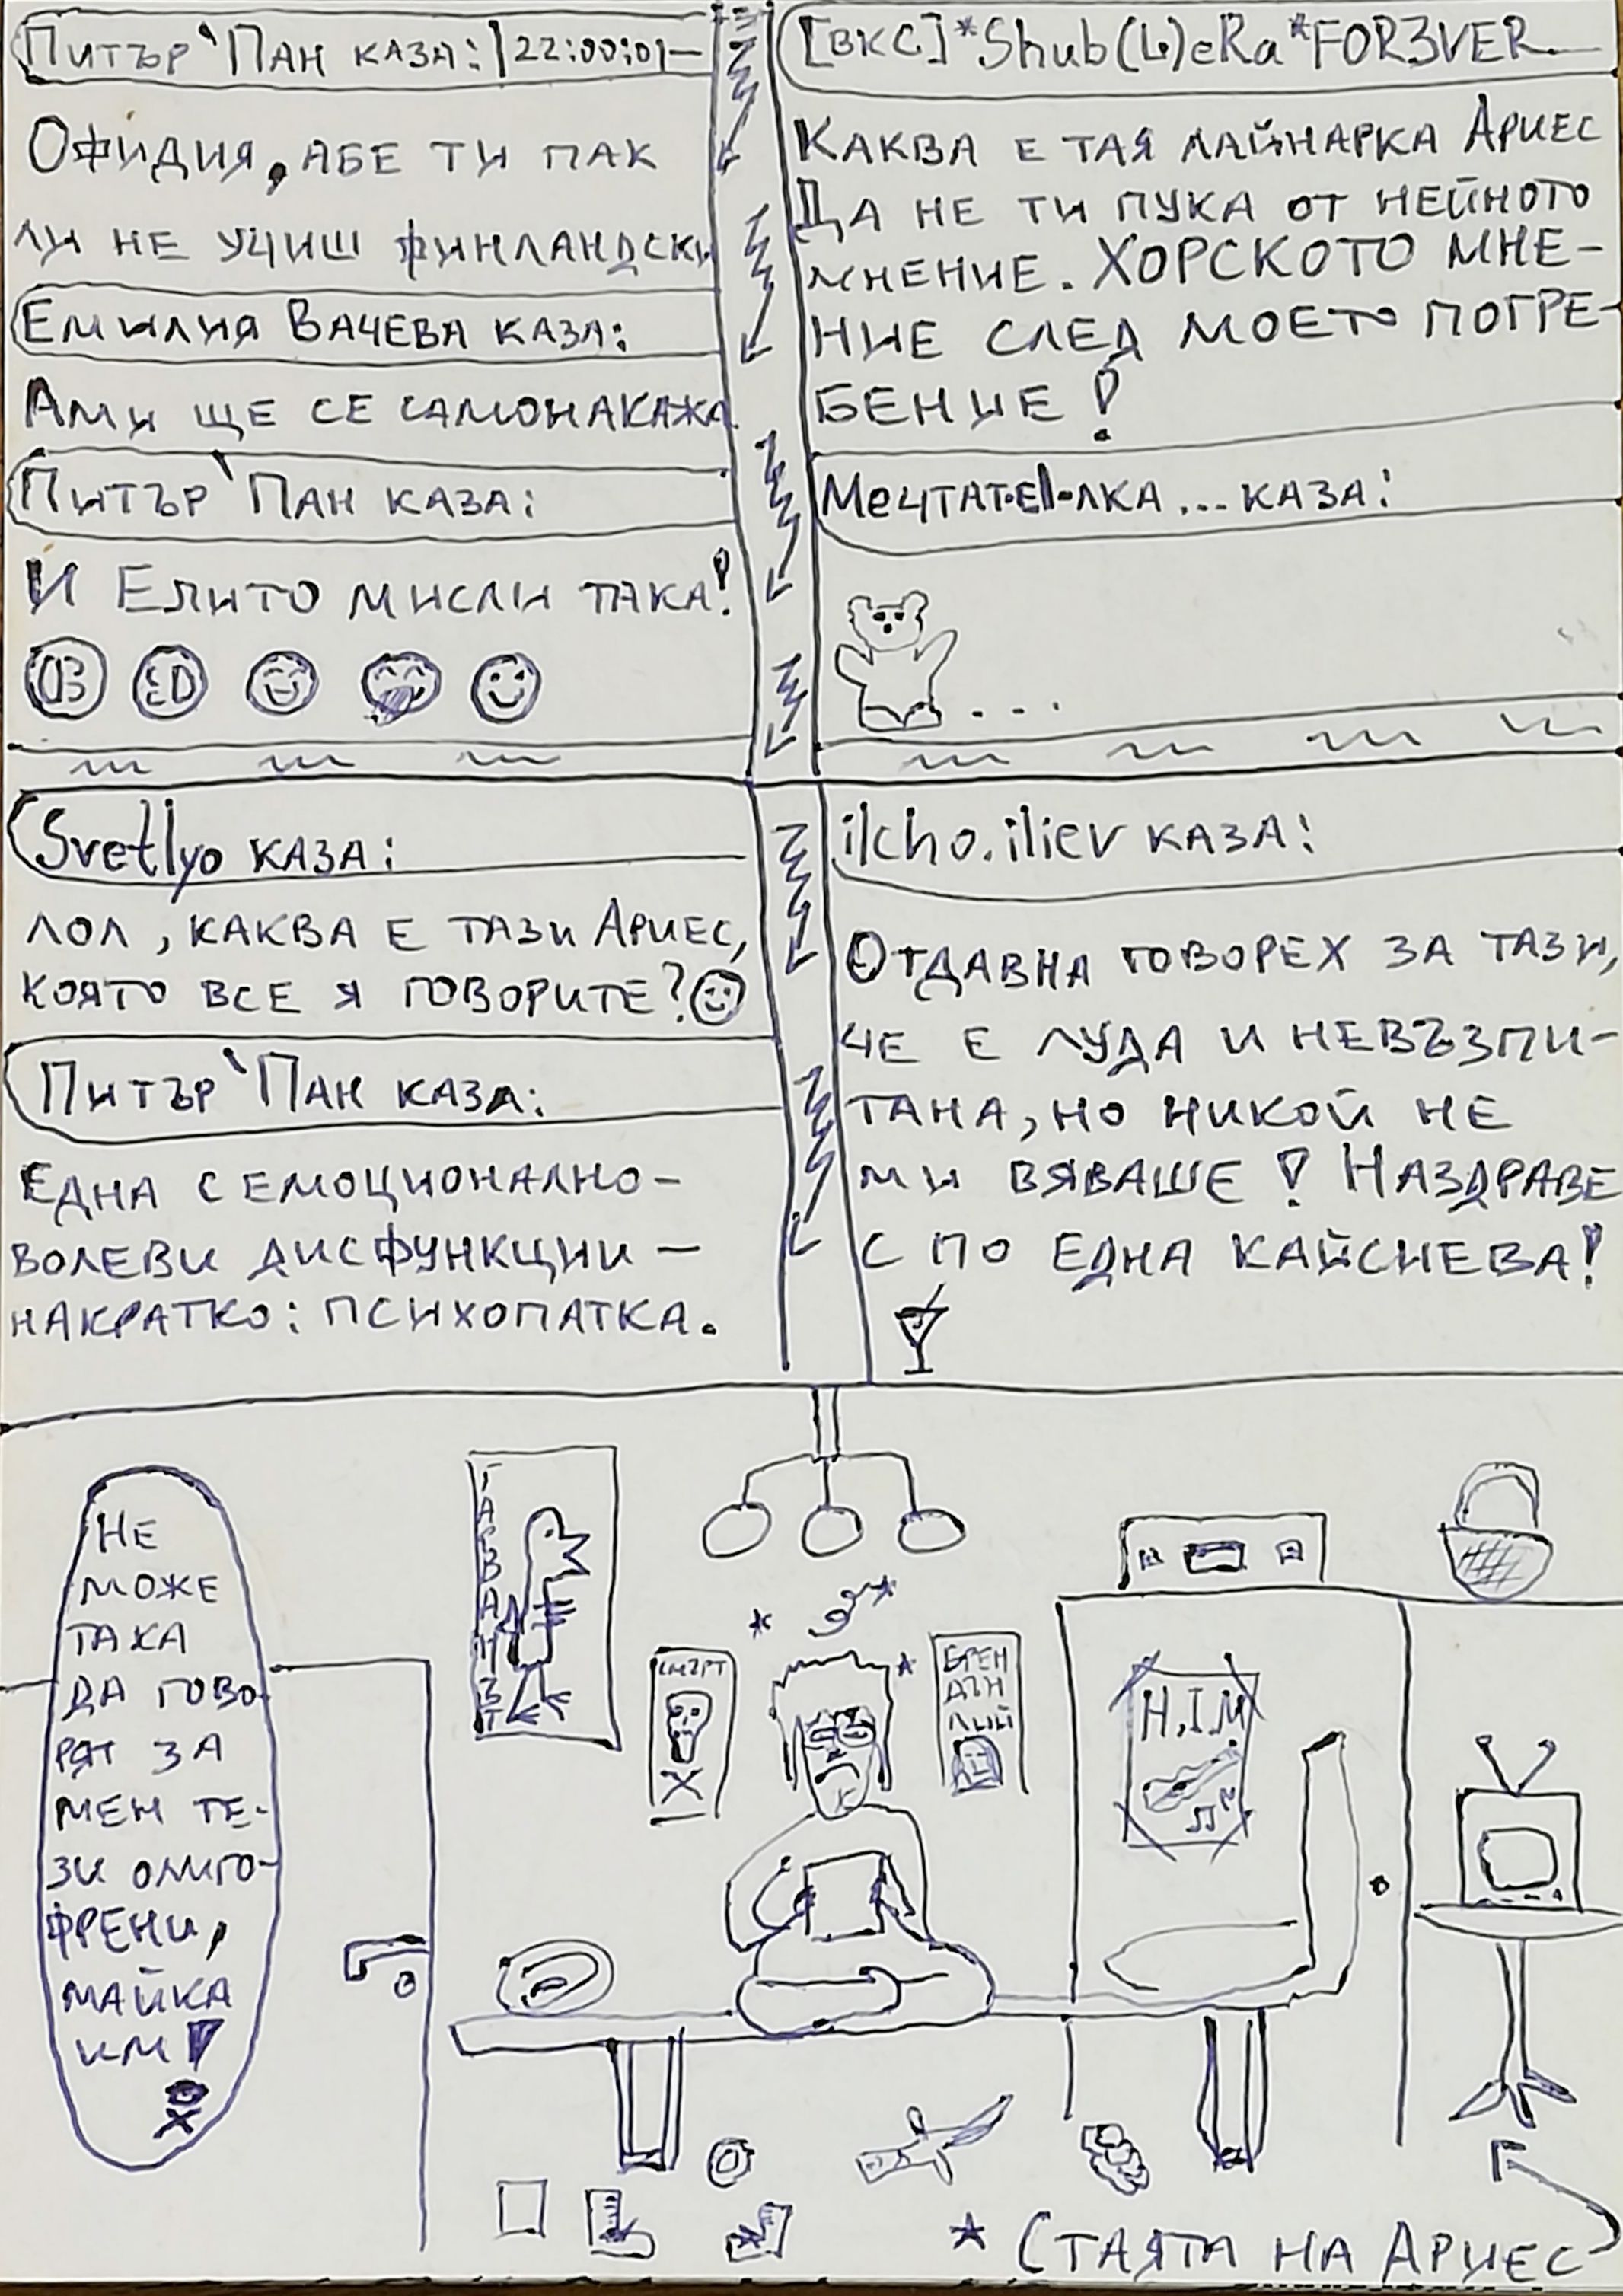 Питър`Пан каза: |22:00:01—
Офидия, абе ти пак
ли не учиш финландски
Емилия Вачева каза:
Ами ще се самонакажа
Питър`Пан каза:
И Елито мисли така!
[ВКС]*Shub(L)eRa*FOR3VER
Каква е тая лайнарка Ариес
Да не ти пука от нейното
мнение. Хорското мне-
ние след моето погре-
бение!
Мечтател-лка... каза:
...
Svetlyo каза:
лол, каква е тази Ариес,
която все я говорите?
Питър`Пан каза:
Една с емоционално-
волеви дисфункции —
накратко: психопатка.
ilcho.iliev каза:
Отдавна говорех за тази,
че е луда и невъзпи-
тана, но никой не
ми вяваше! Наздраве
с по една кайсиева!
Не
може
така
да гово-
рят за
мен те-
зи олиго-
френи,
майка
им!
Гарванът
Смърт
Брен
дън
Лий
H.I.M
* Стаята на Ариес